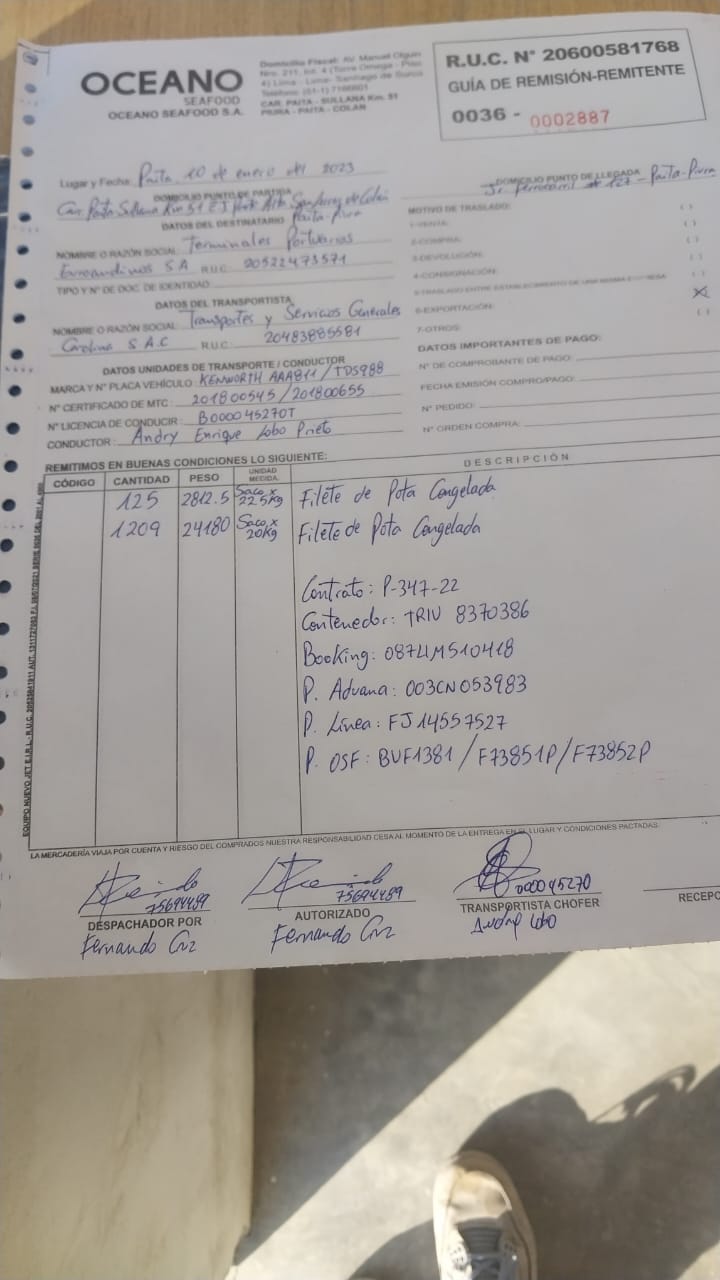 OCEANO
SEAFOOD
OCEANO SEAFOOD S.A.
Domicilio Fiscal: AV. Manuel Olguin
Nro. 211, Int. 4 (Torre Omega - Piso
4) Lima - Lima - Santiago de Surco
CAR. PAITA - SULLANA Km. 51
PIURA - PAITA - COLAN
R.U.C. N° 20600581768
GUÍA DE REMISIÓN-REMITENTE
0036 - 0002887
Lugar y Fecha: Paita 10 de enero del 2023
DOMICILIO PUNTO DE PARTIDA
Car. Paita Sullana Km 51
Paita-Piura
DOMICILIO PUNTO DE LLEGADA
Paita-Piura
DATOS DEL DESTINATARIO
NOMBRE O RAZÓN SOCIAL: Terminales Portuarios
Euroandinos SA R.U.C. 20522473571
TIPO Y N° DE DOC. DE IDENTIDAD:
DATOS DEL TRANSPORTISTA
NOMBRE O RAZÓN SOCIAL: Transportes y Servicios Generales
Carolina S A C R.U.C. 20483885581
DATOS UNIDADES DE TRANSPORTE / CONDUCTOR
MARCA Y N° PLACA VEHÍCULO: KENWORTH AAA811 / TDS988
N° CERTIFICADO DE MTC: 201800545 / 201800655
N° LICENCIA DE CONDUCIR: B000045270T
CONDUCTOR: Andry Enrique Lobo Prieto
MOTIVO DE TRASLADO:
1-VENTA: ( )
2-COMPRA: ( )
3-DEVOLUCIÓN: ( )
4-CONSIGNACIÓN: ( )
5-TRASLADO ENTRE ESTABLECIMIENTO DE UNA MISMA EMPRESA ( )
6-EXPORTACIÓN: X
7-OTROS: ( )
DATOS IMPORTANTES DE PAGO:
N° DE COMPROBANTE DE PAGO:
FECHA EMISIÓN COMPRO/PAGO:
N° PEDIDO:
N° ORDEN COMPRA:
REMITIMOS EN BUENAS CONDICIONES LO SIGUIENTE:
CÓDIGO CANTIDAD PESO UNIDAD MEDIDA DESCRIPCIÓN
125 2812.5 Saco x 22.5Kg Filete de Pota Congelada
1209 24180 Saco x 20Kg Filete de Pota Congelada
Contrato: P-347-22
Contenedor: TRIV 8370386
Booking: 087LIM510418
P. Aduana: 003CN053983
P. Línea: FJ14557527
P. OSF: BUF1381 / F73851P / F73852P
LA MERCADERÍA VIAJA POR CUENTA Y RIESGO DEL COMPRADOS NUESTRA RESPONSABILIDAD CESA AL MOMENTO DE LA ENTREGA EN EL LUGAR Y CONDICIONES PACTADAS.
75694489
DESPACHADOR POR
Fernando Cruz
75694489
AUTORIZADO
Fernando Cruz
000045270
TRANSPORTISTA CHOFER
Andry Lobo
RECEPC